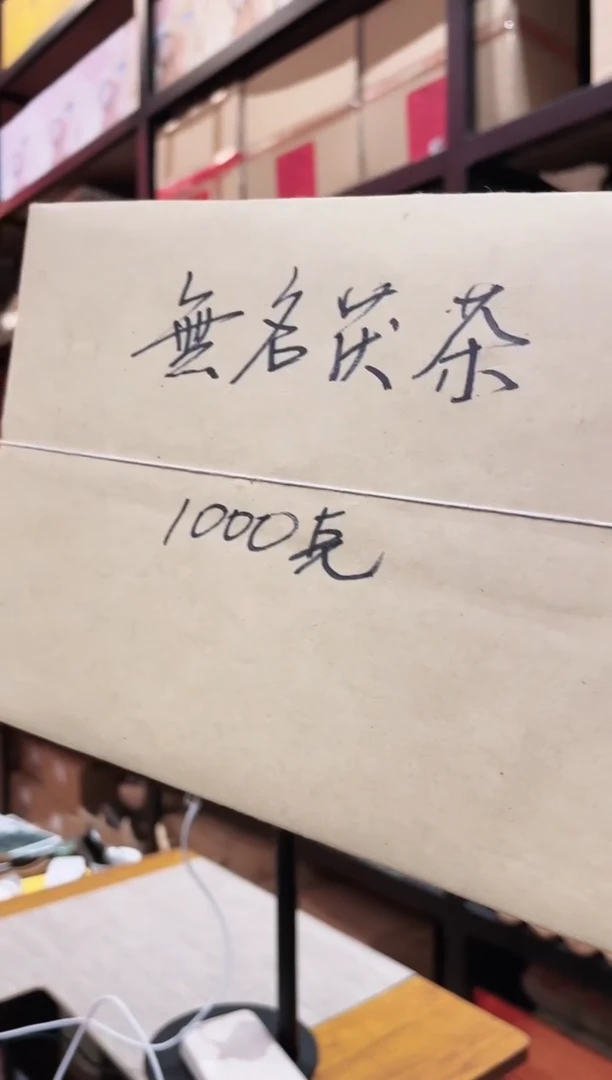 無名茯茶
1000克